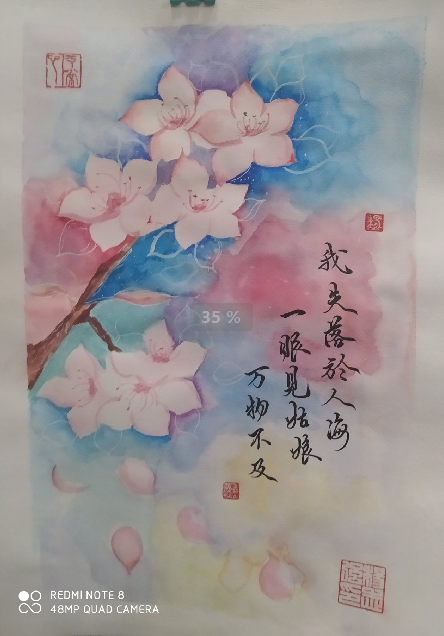 我失落於人海
一眼見姑娘
万物不及
35 %
REDMI NOTE 8
48MP QUAD CAMERA